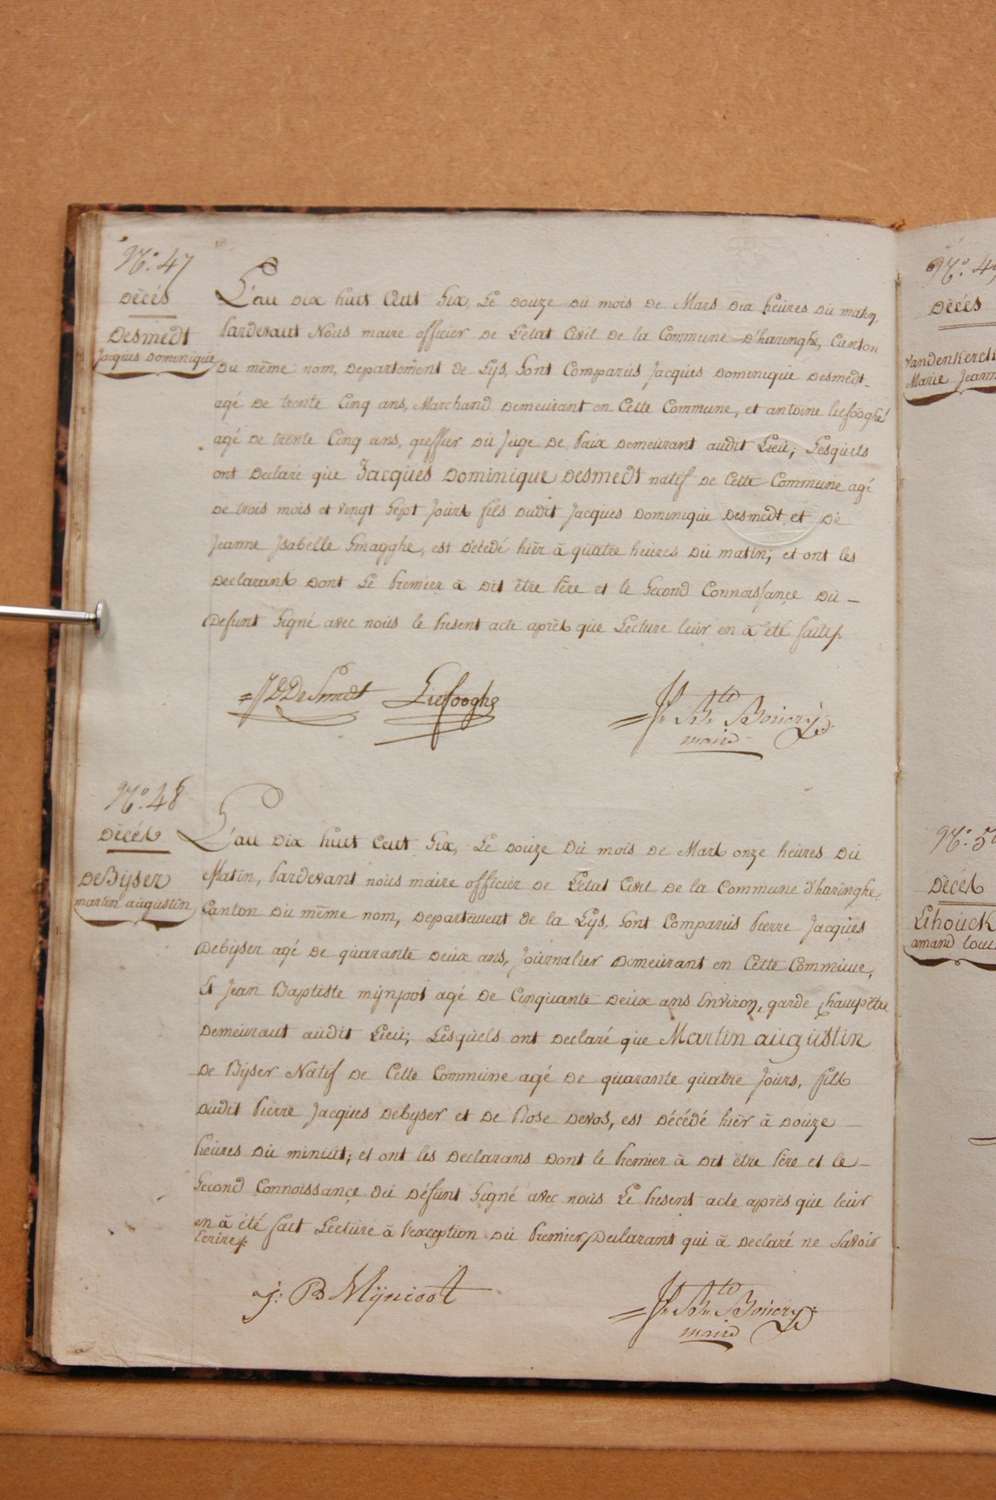 N.o 47
Décés
Desmedt
Jacques Dominique
L'an dix huit Cent Six, Le douze du mois de Mars dix heures du matin,
Pardevant Nous maire officier de L'etat Civil de la Commune d'haringhe, Canton
du même nom, departement de Lijs, Sont Comparus Jacques Dominique Desmedt
agé de trente Cinq ans, Marchand demeurant en Cette Commune, et antoine Liefooghe
agé de trente Cinq ans, greffier du Juge de Paix demeurant audit Lieu; Lesquels
ont declaré que Jacques Dominique Desmedt natif de Cette Commune agé
de trois mois et vingt Sept Jours fils dudit Jacques Dominique Desmedt et de
Jeanne Isabelle Smagghe, est décédé hier à quatre heures du matin; et ont les
declarans dont Le Premier à dit être Père et le Second Connoissance du
defunt Signé avec nous le Present acte après que Lecture leur en à été faite.
JD De Smedt Liefooghe
maire
N.o 48
Décés
De Bÿser
martin augustin
L'an dix huit Cent Six, Le douze du mois de Mars onze heures du
Matin, Pardevant nous maire officier de L'état Civil de la Commune d'haringhe
Canton du même nom, departement de la Lijs, Sont Comparus Pierre Jacques
Debijser agé de quarante deux ans, Journalier demeurant en Cette Commune,
Et Jean Baptiste mijnjoot agé de Cinquante deux ans Environ, garde Champêtre
demeurant audit Lieu; Lesquels ont declaré que Martin augustin
de Bÿser Natif de Cette Commune agé de quarante quatre Jours, fils
dudit Pierre Jacques Debijser et de Rose Devos, est décédé hier à douze
heures du minuit; et ont les declarans dont le Premier à dit être Père et le
Second Connoissance du défunt Signé avec nous Le Present acte après que leur
en à été fait Lecture à l'exception du Premier Declarant qui à declaré ne Savoir
Ecrire.
j: B Mijncoot
maire
N.o 4
Décés
vandenkerck
Marie Jeann
N.o 5
Décés
Lihouck
amand Loui